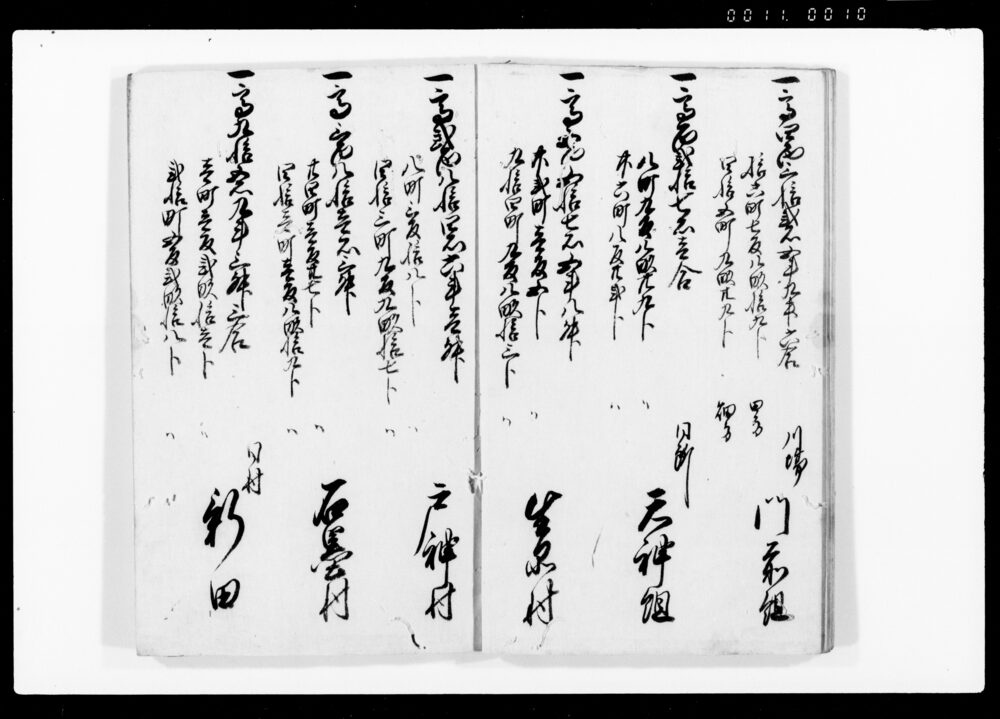 0011. 0010
一高四百三拾弐石五斗九升六合
拾六町七反八畝拾九卜 田方
四拾五町九畝廿九卜 畑方
川場
門前組
一高百弐拾七石壱合
八町九反八畝廿九卜 〃
廿六町八反廿弐卜 〃
同断
天神組
一高 五拾七石五斗八升
廿弐町壱反 卜 〃
九拾四町九反八畝拾三卜 〃
生品村
一高弐百八拾四石六斗壱升
八町三反拾八卜 〃
四拾三町九反九畝拾七卜 〃
戸神村
一高三百八拾壱石三升
廿四町壱反廿七卜 〃
四拾壱町壱反八畝拾九卜 〃
石墨村
一高九拾五石九斗三升三合
壱町壱反弐畝拾壱卜 〃
弐拾町五反弐畝拾八卜 〃
同村
新田